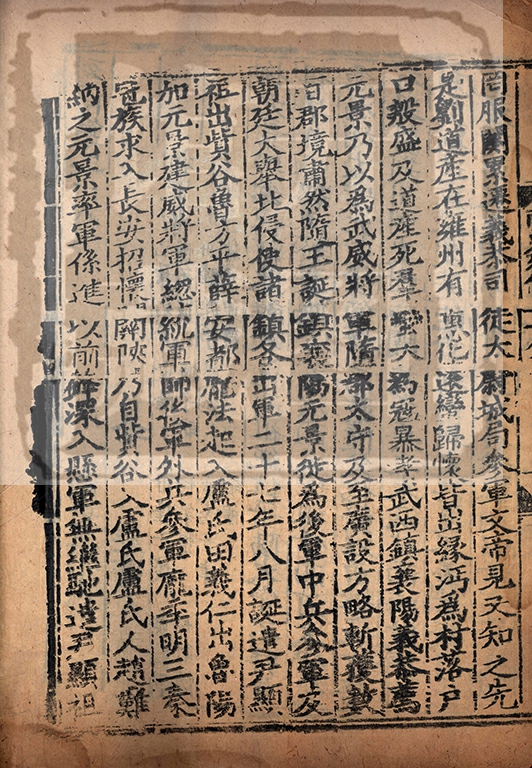 服闋累遷義恭司徒太尉城局參軍文帝見又知之先
是劉道產在雍州有惠化遠蠻歸懷皆出緣沔爲村落戶
口殷盛及道產死羣蠻大爲寇暴孝武西鎮襄陽義恭薦
元景乃以爲武威將軍隋郡太守及至廣設方略斬獲數
百郡境肅然隋王誕鎮襄陽元景徙爲後軍中兵參軍及
朝廷大舉北侵使諸鎮各出軍二十七年八月誕遣尹顯
祖出貲谷魯方平薛安都龐法起入盧氏田義仁出魯陽
加元景建威將軍總統軍帥後軍外兵參軍龐季明三秦
冠族求入長安招懷關陝乃自貲谷入盧氏盧氏人趙難
納之元景率軍係進以前鋒深入懸軍無繼馳遣尹顯祖